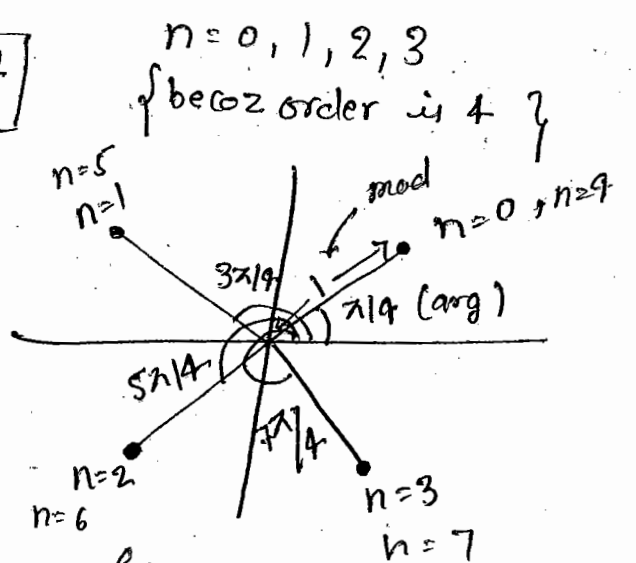 n = 0, 1, 2, 3
{becoz order is 4}
n=5
n=1
mod
n=0, n=4
3π/4
1
π/4 (arg)
5π/4
7π/4
n=2
n=6
n=3
n=7